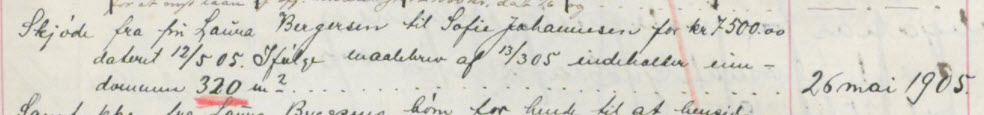 Skjøde fra fru Laura Bergersen til Sofie Johannesen for kr 7500.00
dateret 12/5 05. Ifølge maalebrev af 13/3 05 indeholder eien-
dommen 320 m². 26 mai 1905.
fra Laura Bergersens børn for hende til at